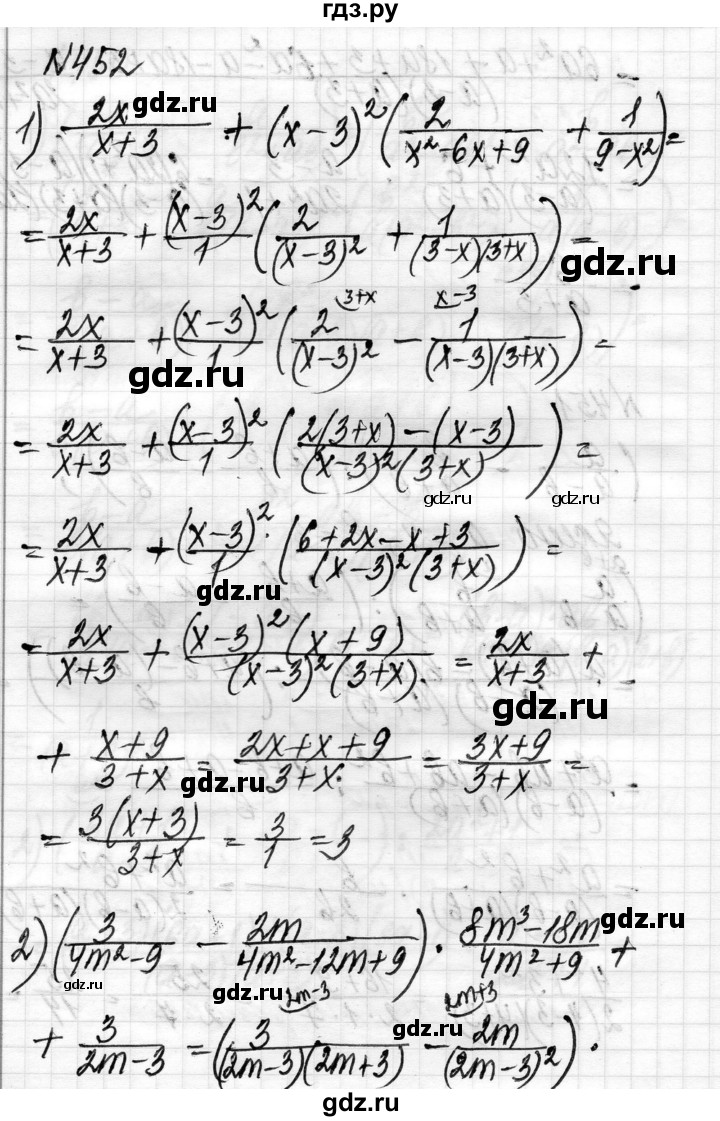 гдз.ру
N452
1) 2x/(x+3) + (x-3)²(2/(x²-6x+9) + 1/(9-x²)) =
= 2x/(x+3) + (x-3)²/1 (2/(x-3)² + 1/((3-x)(3+x))) =
= 2x/(x+3) + (x-3)²/1 (2/(x-3)² - 1/((x-3)(3+x))) =
3+x x-3
= 2x/(x+3) + (x-3)²/1 ((2(3+x)-(x-3))/((x-3)²(3+x))) =
= 2x/(x+3) + (x-3)²/1 · ((6+2x-x+3)/((x-3)²(3+x))) =
= 2x/(x+3) + ((x-3)²(x+9))/((x-3)²(3+x)) = 2x/(x+3) +
+ (x+9)/(3+x) = (2x+x+9)/(3+x) = (3x+9)/(3+x) =
= 3(x+3)/(3+x) = 3/1 = 3
2) (3/(4m²-9) - 2m/(4m²-12m+9)) · (8m³-18m)/(4m²+9) +
2m-3 2m+3
+ 3/(2m-3) = (3/((2m-3)(2m+3)) - 2m/(2m-3)²) ·
gdz.ru
gdz.ru
gdz.ru
gdz.ru
gdz.ru
gdz.ru
gdz.ru
gdz.ru
gdz.ru
gdz.ru
gdz.ru
gdz.ru
gdz.ru
gdz.ru